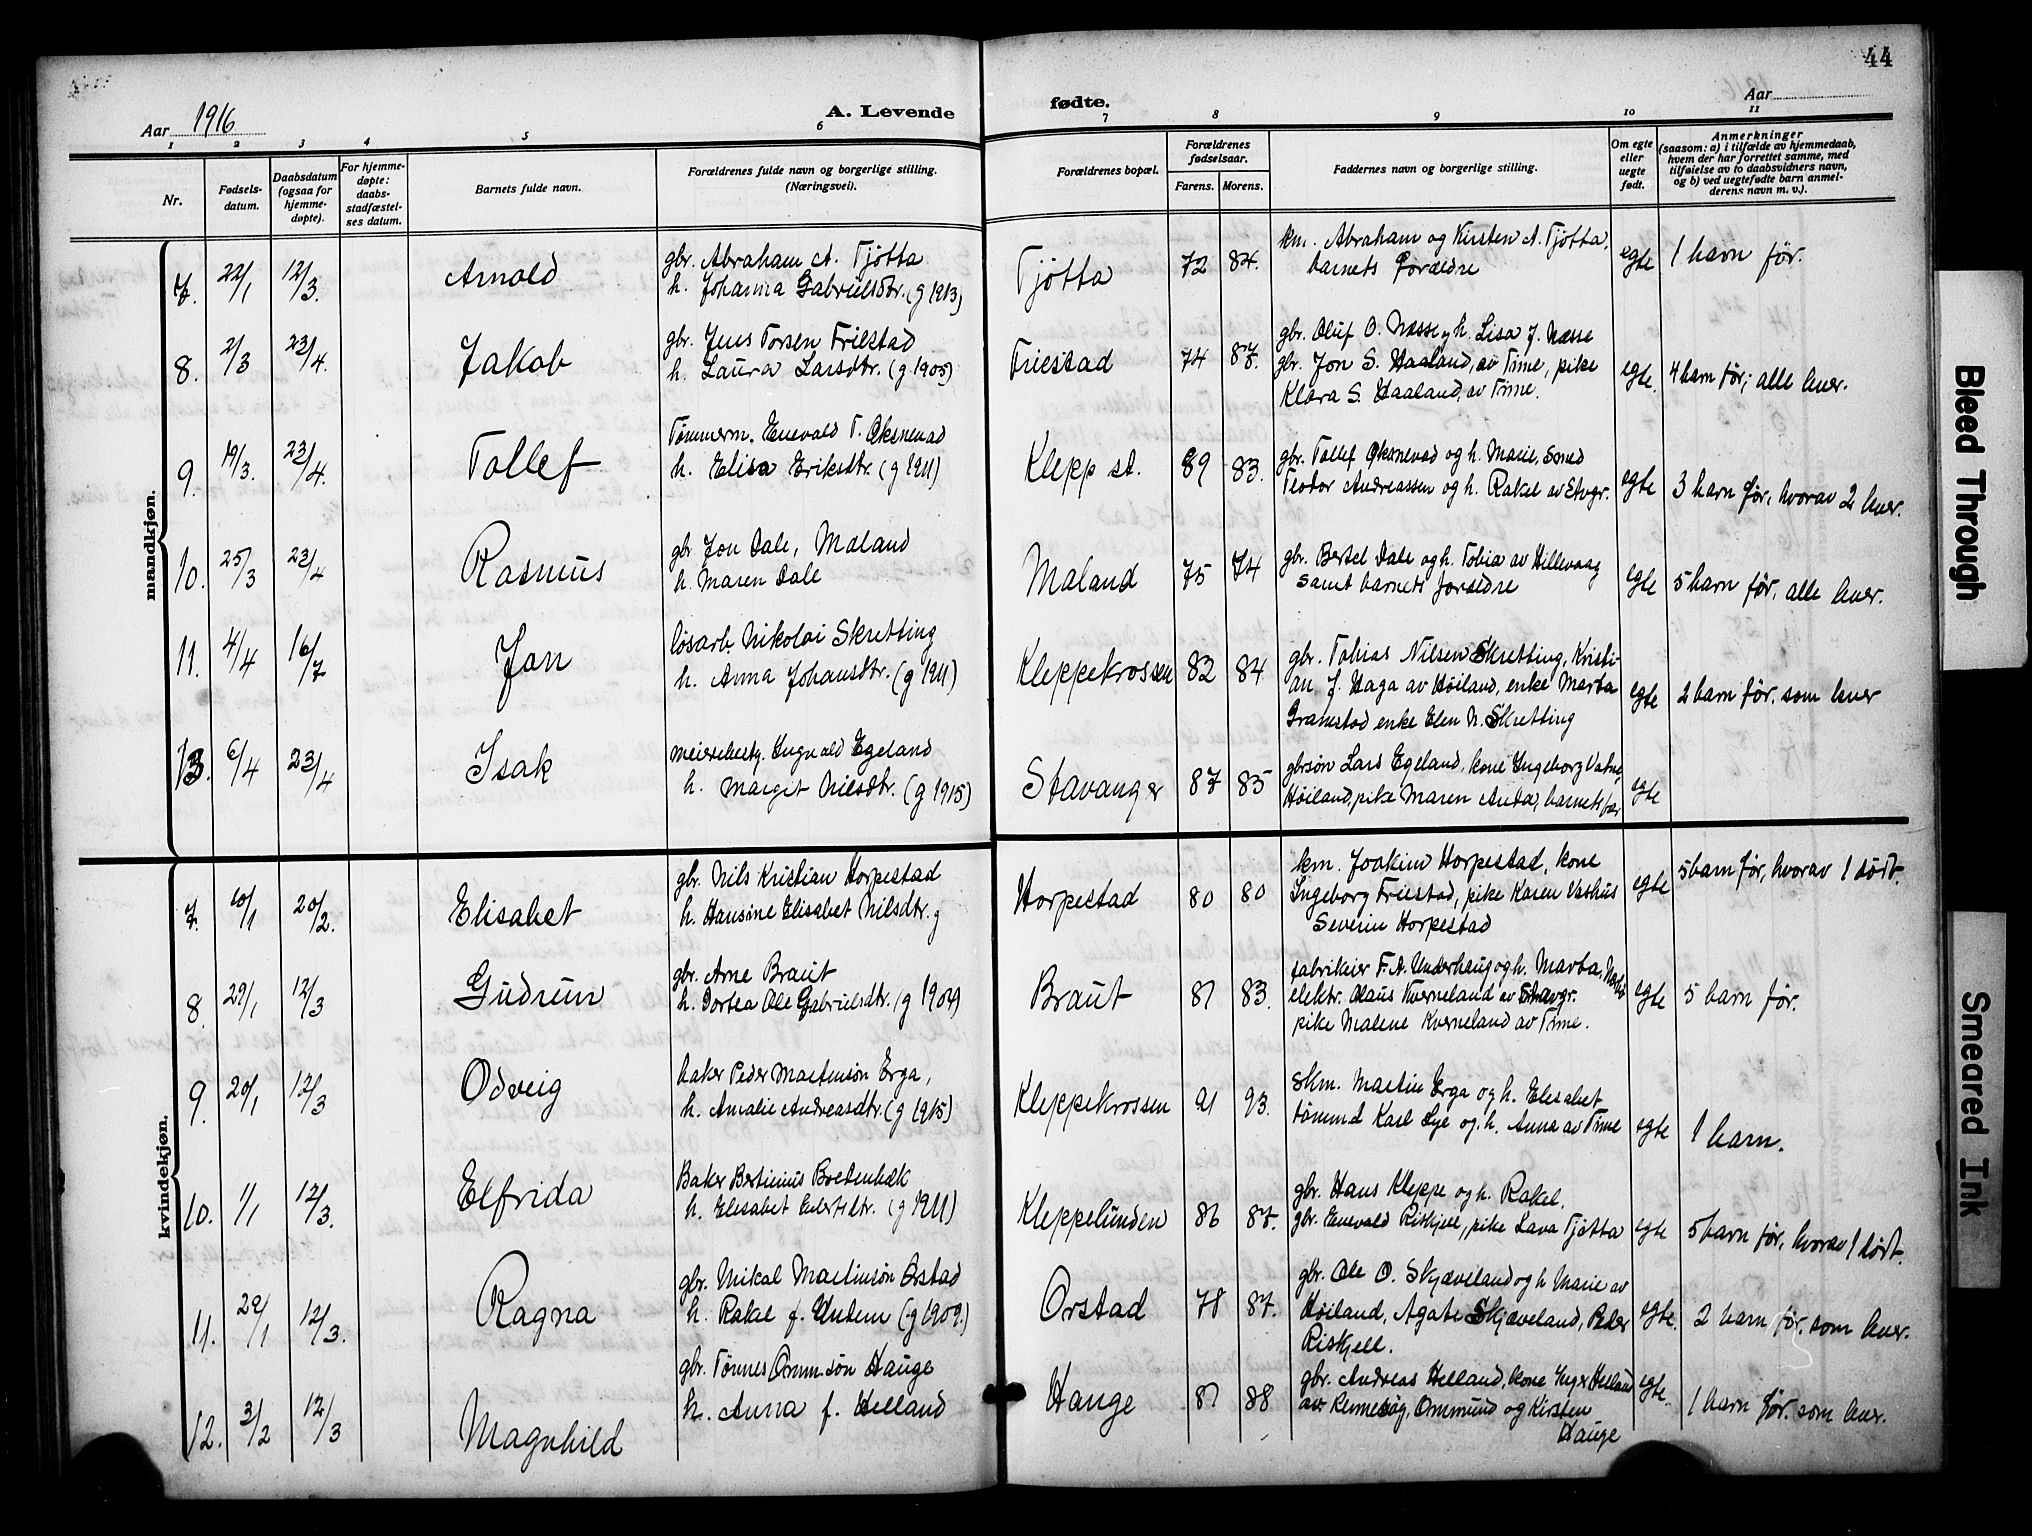 44
Aar 1916
A. Levende
fødte.
Aar
1 2 3 4 5 6 7 8 9 10 11
Nr.
Fødsels-
datum.
Daabsdatum
(ogsaa for
hjemme-
døpte).
For hjemme-
døpte:
daabs-
stadfæstel-
ses datum.
Barnets fulde navn.
Forældrenes fulde navn og borgerlige stilling.
(Næringsvei).
Forældrenes bopæl.
Forældrenes
fødselsaar.
Farens. Morens.
Faddernes navn og borgerlige stilling.
Om egte
eller
uegte
født.
Anmerkninger
(saasom: a) i tilfælde av hjemmedaab,
hvem der har forrettet samme, med
tilføielse av to daabsvidners navn,
og b) ved uegtefødte barn anmel-
derens navn m. v.).
mandkjøn.
7. 22/1 12/3. Arnold
gbr. Abraham A. Tjøtta
h. Johanna Gabrielsdtr. (g 1913)
Tjøtta 72 84.
km. Abraham og Kirsten A. Tjøtta,
barnets forældre
egte 1 barn før.
8. 2/3 23/4. Jakob
gbr. Jens Torsen Friestad
h. Laura Larsdtr. (g 1905)
Friestad 74 87.
gbr. Oluf O. Næsse og h. Lisa J. Næsse
gbr. Jon S. Haaland, av Time, pike
Klara S. Haaland, av Time.
egte. 4 barn før; alle lever.
9. 19/3. 23/4. Tollef
Tømmerm. Enevald T. Øksnevad
h. Elisa Eriksdtr. (g 1911)
Klepp st. 89 83.
gbr. Tollef Øksnevad og h. Marie, smed
Teodor Andreassen og h. Rakel av Stvgr.
egte 3 barn før, hvorav 2 lever.
10. 25/3 23/4 Rasmus
gbr Jon Dale, Maland
h. Maren Dale
Maland 75 74
gbr. Bertel Dale og h. Tobia av Hillevaag
samt barnets forældre
egte 5 barn før, alle lever.
11. 4/4 16/7 Jan
løsarb. Nikolai Skretting
h. Anna Johansdtr. (g 1911)
Kleppekrossen 82 84
gbr. Tobias Nilsen Skretting, Kristi-
an J. Haga av Høiland, enke Marta
Granestad enke Elen N. Skretting
egte 2 barn før. som lever
13. 6/4 23/4 Isak
meieribesty. Ingvald Egeland
h. Margit Nilsdtr. (g 1915)
Stavanger 87 85
gbrsøn Lars Egeland, kone Ingeborg Vatne,
Høiland, pike Maren Anda, barnets far
egte
kvindekjøn.
7. 10/1 20/2. Elisabet
gbr. Nils Kristian Horpestad
h. Hansine Elisabet Nilsdtr. g
Horpestad 80 80
km. Joakim Horpestad, kone
Ingeborg Friestad, pike Karen Vasshus
Severin Horpestad
egte 5 barn før, hvorav 1 dødt.
8. 29/1 12/3 Gudrun
gbr. Arne Braut
h. Dortea Ole Gabrielsdtr. (g 1904)
Braut 81 83.
fabrikeier F. A. Underhaug og h. Marta,
elektr. Olaus Kverneland av Stavgr.
pike Malene Kverneland av Time.
egte 5 barn før.
9. 20/1 12/3 Odveig
baker Peder Martinsøn Erga,
h. Amalie Andreasdtr. (g 1915)
Kleppekrossen 91 93.
skm. Martin Erga og h. Elisabet
tømmrd Karl Lye og h. Anna av Time
egte 1 barn.
10. 1/1 12/3. Elfrida
Baker Bertinius Bredenbæk
h. Elisabet Evertsdtr. (g 1911)
Kleppelunden 86 87.
gbr. Hans Kleppe og h. Rakel.
gbr. Enevald Riskjell, pike Lava Tjøtta
egte 5 barn før, hvorav 1 dødt.
11. 29/1 12/3. Ragna
gbr. Mikal Martinsøn Orstad
h. Rakel f. Undem (g 1909.)
Orstad 78 87.
gbr. Ole O. Skjæveland og h Marie av
Høiland, Agate Skjæveland, Peder
Riskjell.
egte. 2 barn før. som lever.
12. 3/2 12/3 Magnhild
gbr. Tønnes Ommsøn Hauge
h. Anna f. Helland
Hauge 81 88
gbr. Andreas Helland, kone Inger Helland
av Rennesøy, Ommund og Kirsten
Hauge
egte. 1 barn før. som lever.
Bleed Through
Smeared Ink